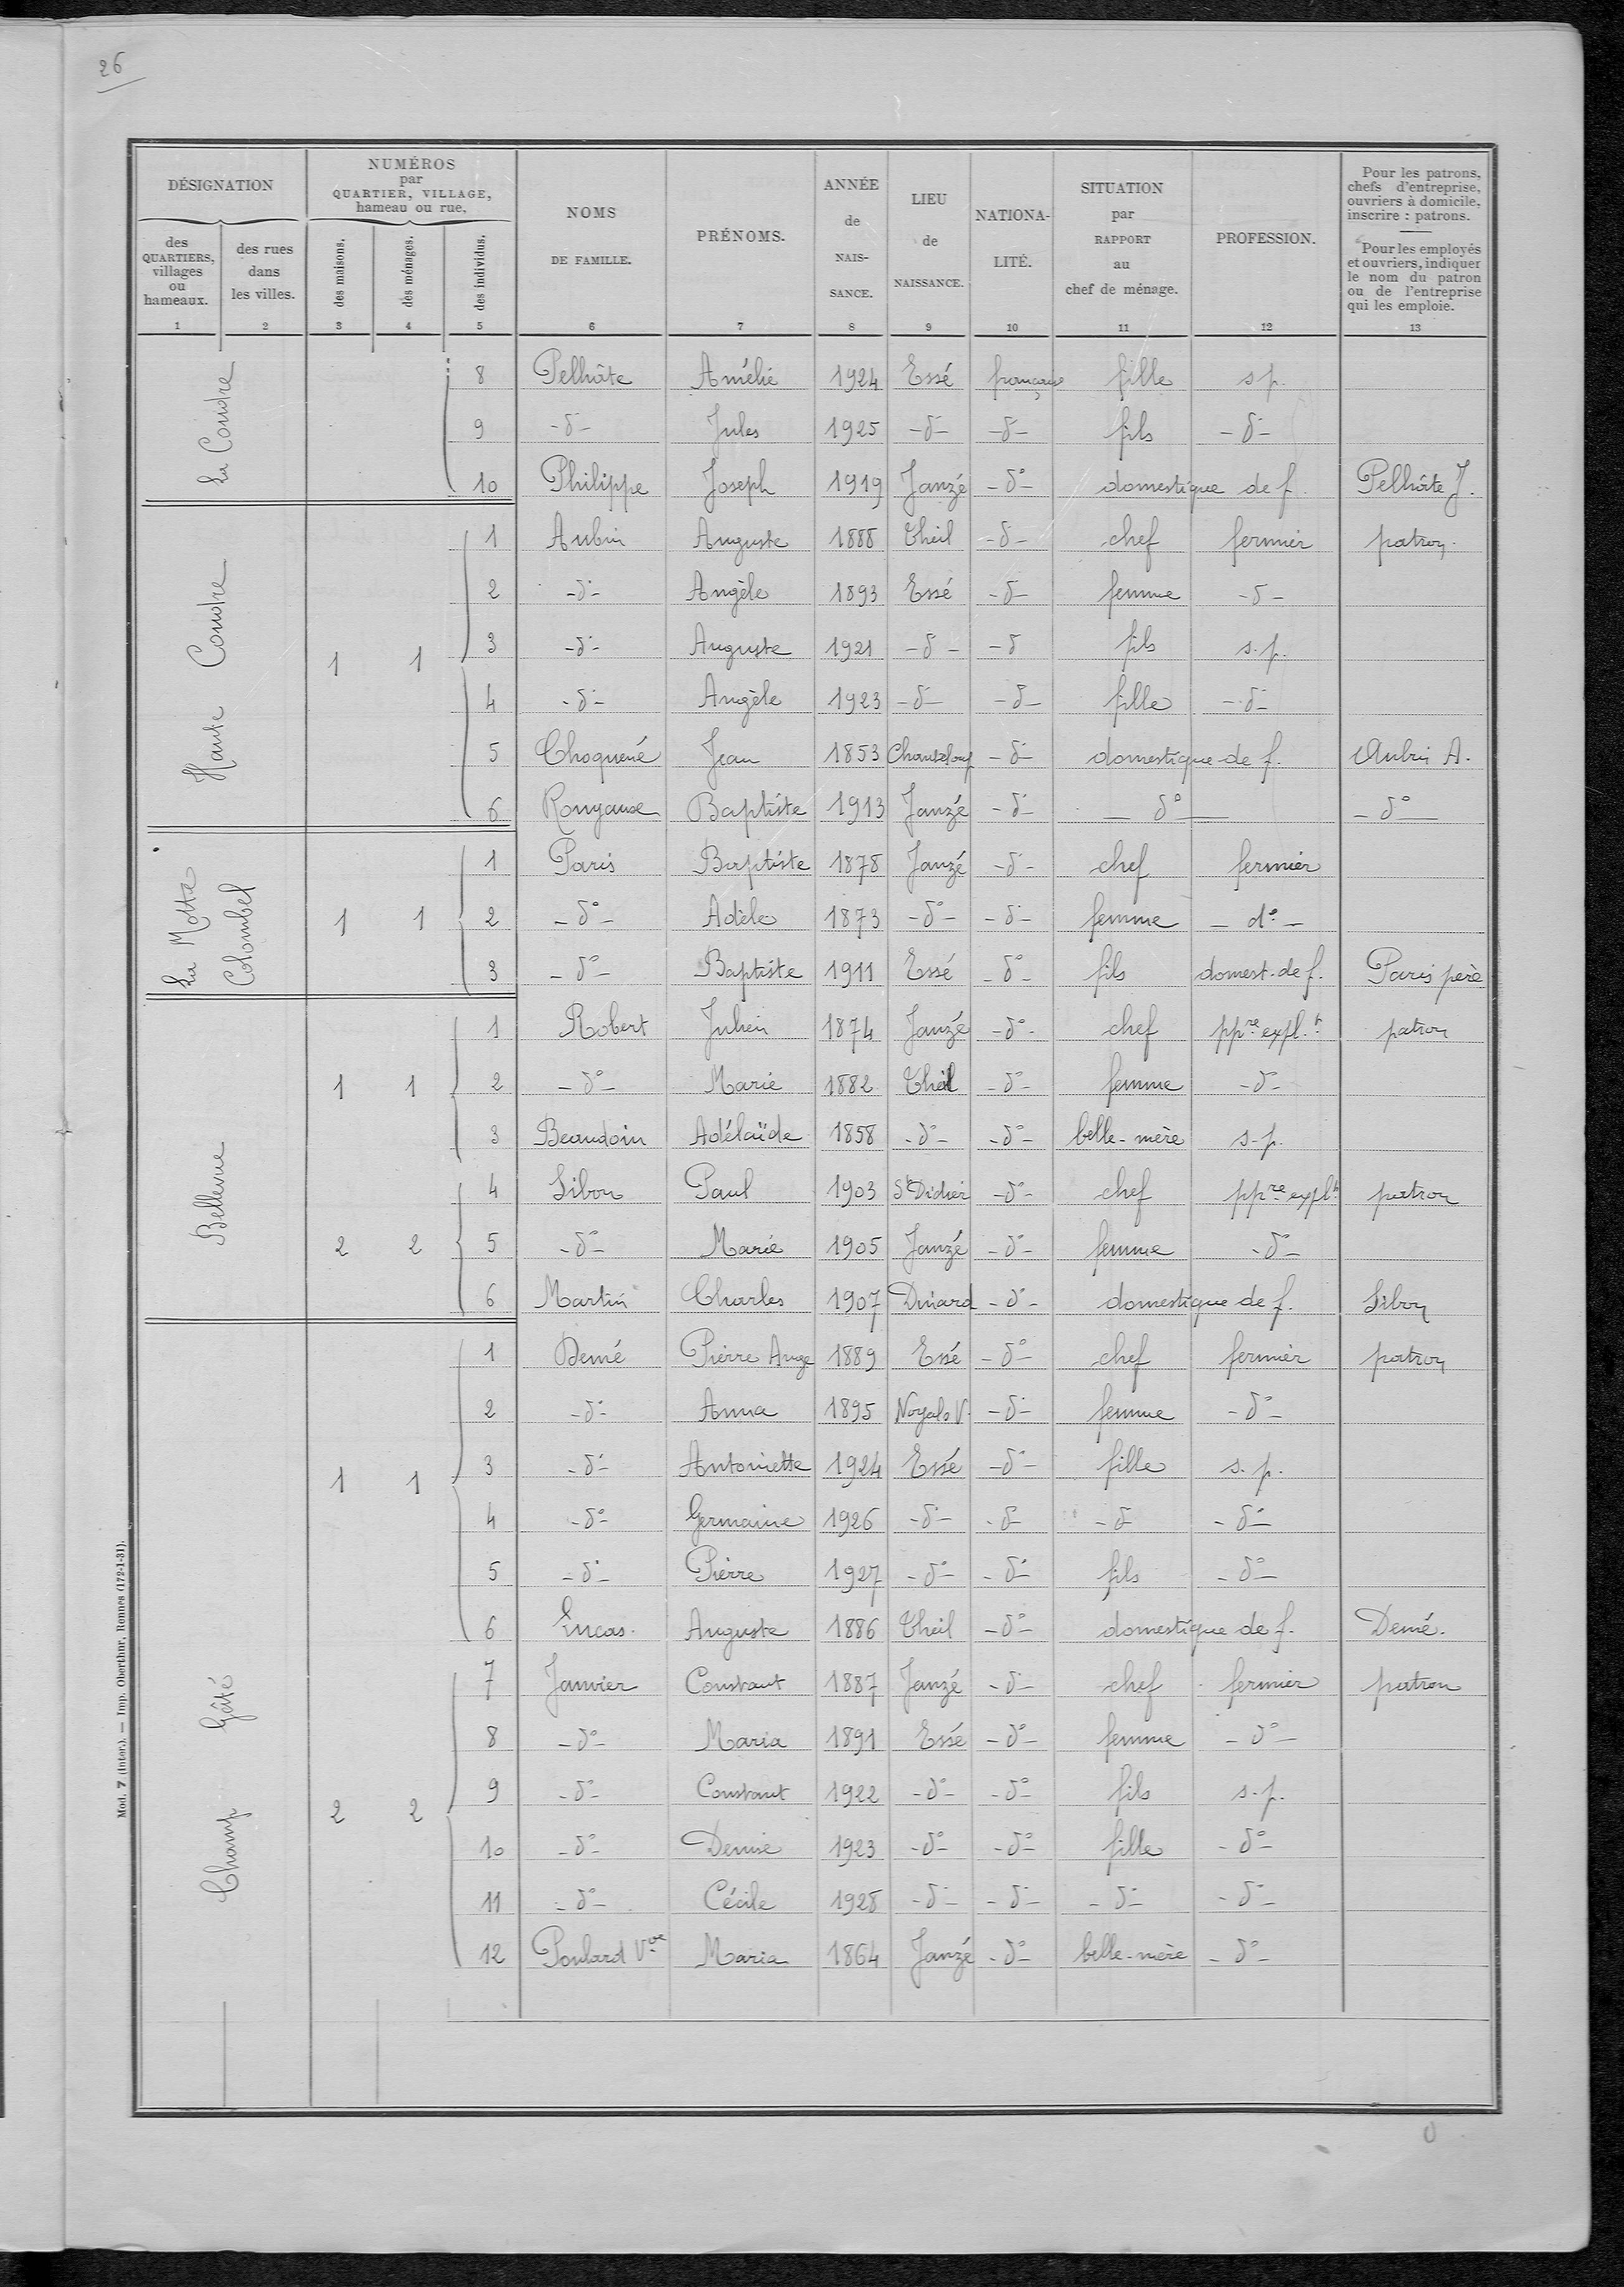 26
DÉSIGNATION
NUMÉROS
par
QUARTIER, VILLAGE,
hameau ou rue.
des
QUARTIERS,
villages
ou
hameaux.
des rues
dans
les villes.
des maisons.
des ménages.
des individus.
NOMS
DE FAMILLE.
PRÉNOMS.
ANNÉE
de
NAIS-
SANCE.
LIEU
de
NAISSANCE.
NATIONA-
LITÉ.
SITUATION
par
RAPPORT
au
chef de ménage.
PROFESSION.
Pour les patrons,
chefs d'entreprise,
ouvriers à domicile,
inscrire : patrons.
Pour les employés
et ouvriers, indiquer
le nom du patron
ou de l'entreprise
qui les emploie.
1 2 3 4 5 6 7 8 9 10 11 12 13
La Coudre
8 Pelhâte Amélie 1924 Essé française fille s p.
9 -d°- Jules 1925 -d°- -d°- fils -d°-
10 Philippe Joseph 1919 Janzé -d°- domestique de f. Pelhâte J.
Haute Coudre
1 1
1 Aubin Auguste 1888 Theil -d°- chef fermier patron
2 -d°- Angèle 1893 Essé -d°- femme -d°-
3 -d°- Auguste 1921 -d°- -d° fils s.p.
4 -d°- Angèle 1923 -d°- -d°- fille -d°-
5 Choquené Jean 1853 Chanteloup -d°- domestique de f. Aubin A.
6 Baptiste 1913 Janzé -d°- -d°- -d°-
La Motte
Colombel
1 1
1 Paris Baptiste 1878 Janzé -d°- chef fermier
2 -d°- Adèle 1873 -d°- -d°- femme -d°-
3 -d°- Baptiste 1911 Essé -d°- fils domest. de f. Paris père
Bellevue
1 1
1 Robert Julien 1874 Janzé -d°- chef ppre explt patron
2 -d°- Marie 1882 Theil -d°- femme -d°-
3 Beaudoin Adélaïde 1858 -d°- -d°- belle-mère s.p.
2 2
4 Sibon Paul 1903 St Didier -d°- chef ppre explt patron
5 -d°- Marie 1905 Janzé -d°- femme -d°-
6 Martin Charles 1907 Dinard -d°- domestique de f. Sibon
Champ Gâté
1 1
1 Demé Pierre Ange 1889 Essé -d°- chef fermier patron
2 -d°- Anna 1895 Noyal s V. -d°- femme -d°-
3 -d°- Antoinette 1924 Essé -d°- fille s.p.
4 -d°- Germaine 1926 -d°- -d°- -d°- -d°-
5 -d°- Pierre 1927 -d°- -d°- fils -d°-
6 Lucas Auguste 1886 Theil -d°- domestique de f. Demé.
2 2
7 Janvier Constant 1887 Janzé -d°- chef fermier patron
8 -d°- Maria 1891 Essé -d°- femme -d°-
9 -d°- Constant 1922 -d°- -d°- fils s.p.
10 -d°- Denise 1923 -d°- -d°- fille -d°-
11 -d°- Cécile 1928 -d°- -d°- -d°- -d°-
12 Poulard Vve Maria 1864 Janzé -d°- belle-mère -d°-
Mod. 7 (Inter.). — Imp. Oberthur, Rennes (172-1-31).